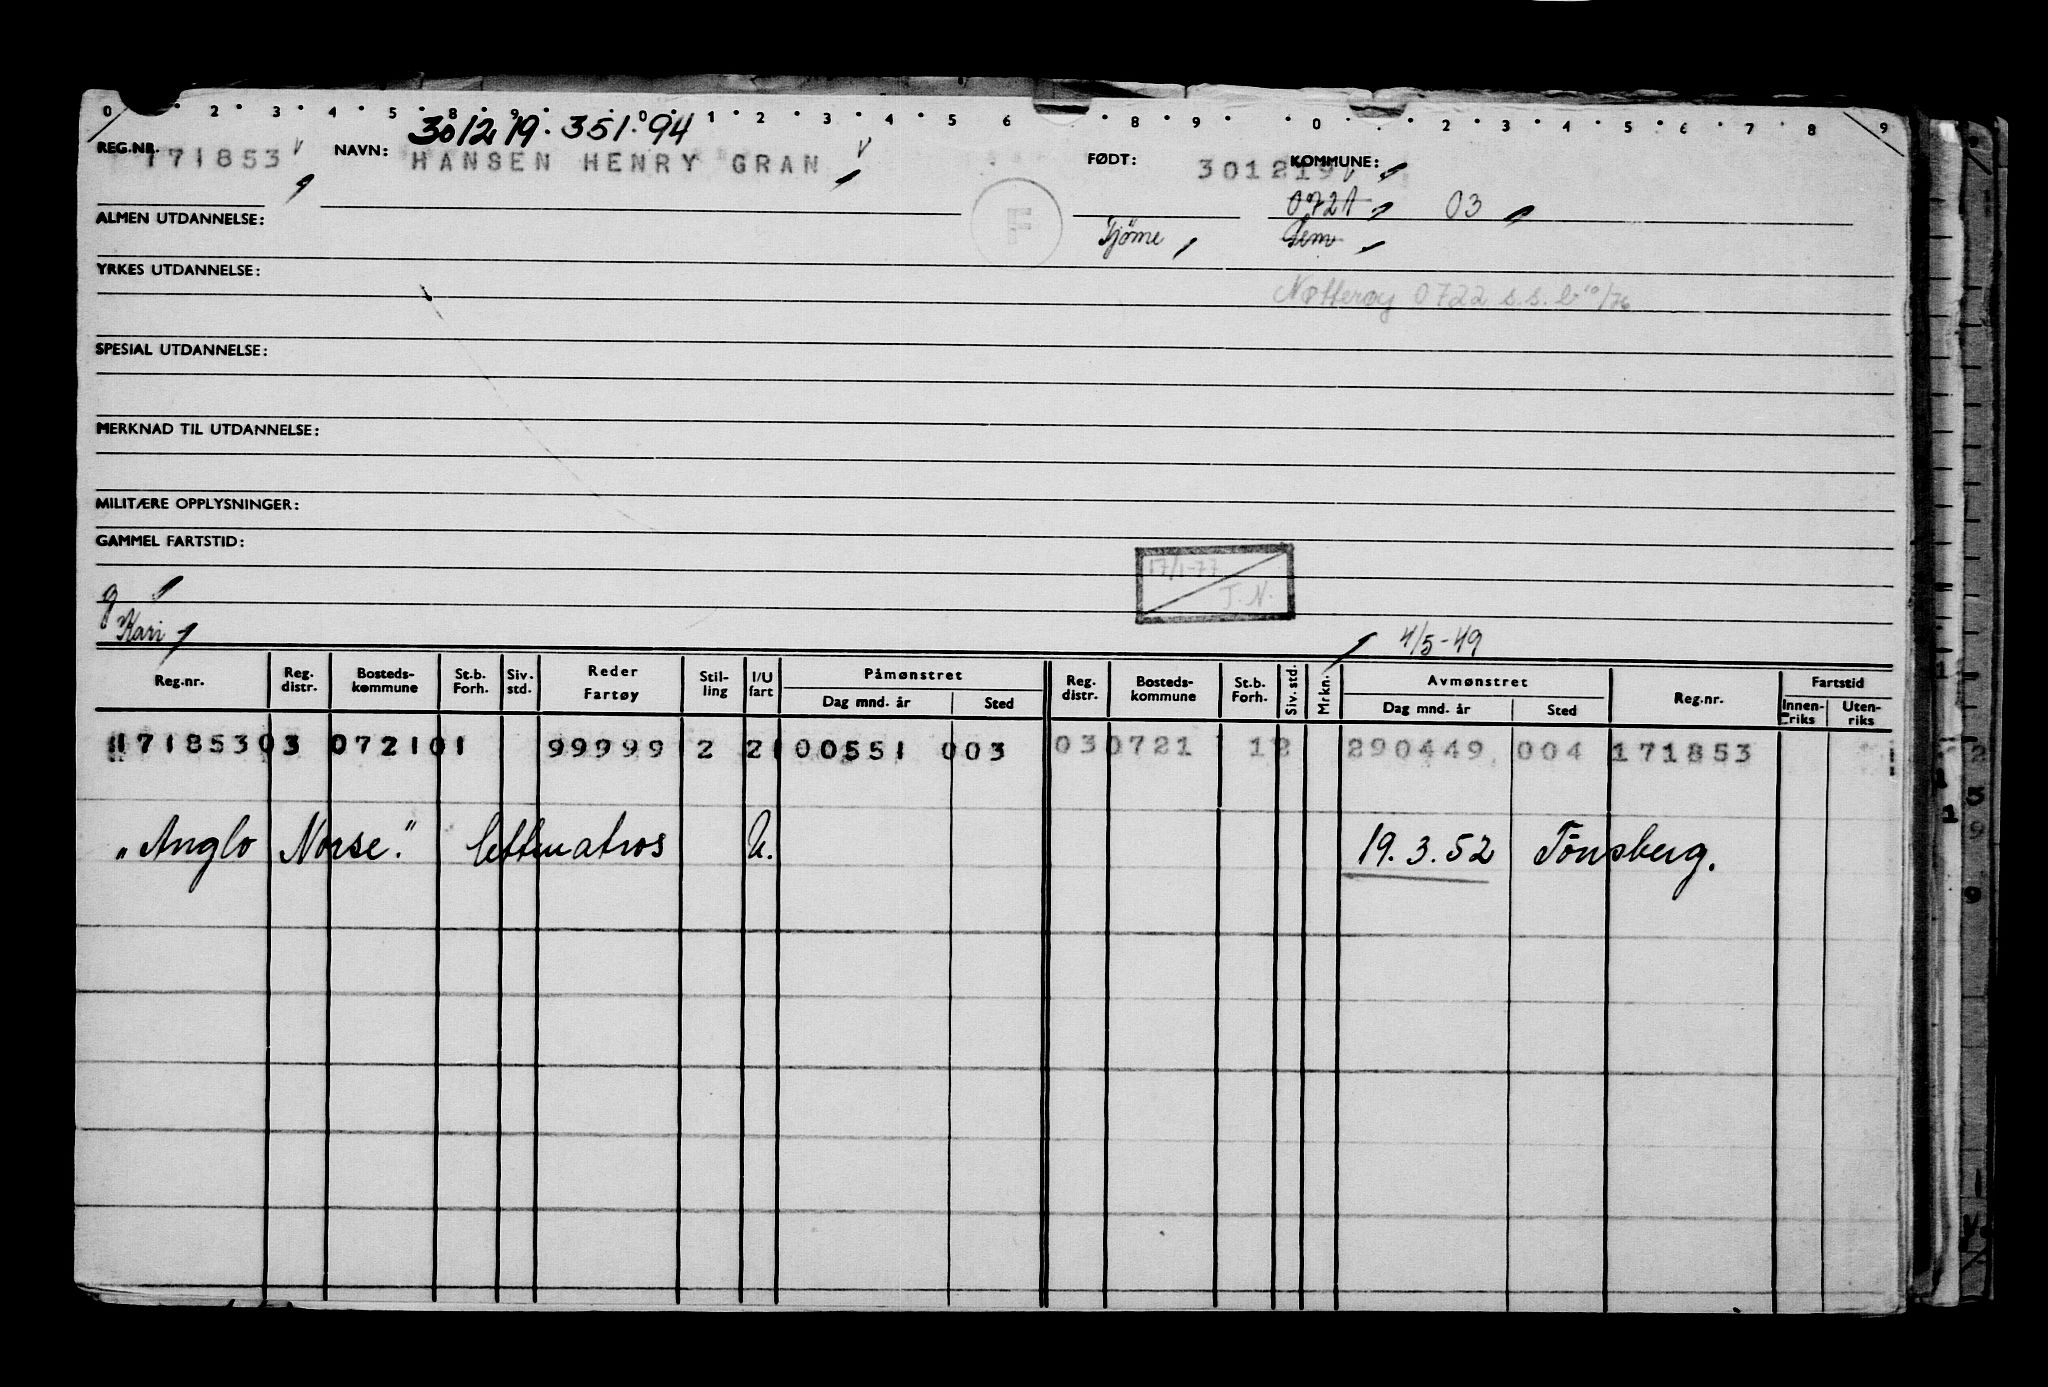 0 2 3 4 5 8 9 0 1 2 3 4 5 6 8 9 0 2 3 4 5 6 7 8 9
301219.351.94
REG.NR. 171853 NAVN: HANSEN HENRY GRAN FØDT: 301219 KOMMUNE:
0721 03
ALMEN UTDANNELSE: F Tjøme Sem
YRKES UTDANNELSE:
Nøtterøy 0722 s.s. b 10/76
SPESIAL UTDANNELSE:
MERKNAD TIL UTDANNELSE:
MILITÆRE OPPLYSNINGER:
GAMMEL FARTSTID:
17/1-77
T.N.
g
Kari
4/5-49
Reg.nr. Reg. distr. Bosteds-kommune St.b. Forh. Siv. std. Reder Fartøy Stil-ling I/U fart Påmønstret Dag mnd. år Sted Reg. distr. Bosteds-kommune St.b. Forh. Siv. std. Mrkn. Avmønstret Dag mnd. år Sted Reg.nr. Fartstid Innen-riks Uten-riks
171853 03 0721 01 99999 2 2 00551 003 03 0721 12 290449 004 171853
„Anglo Norse." lettmatros U. 19.3.52 Tönsberg.